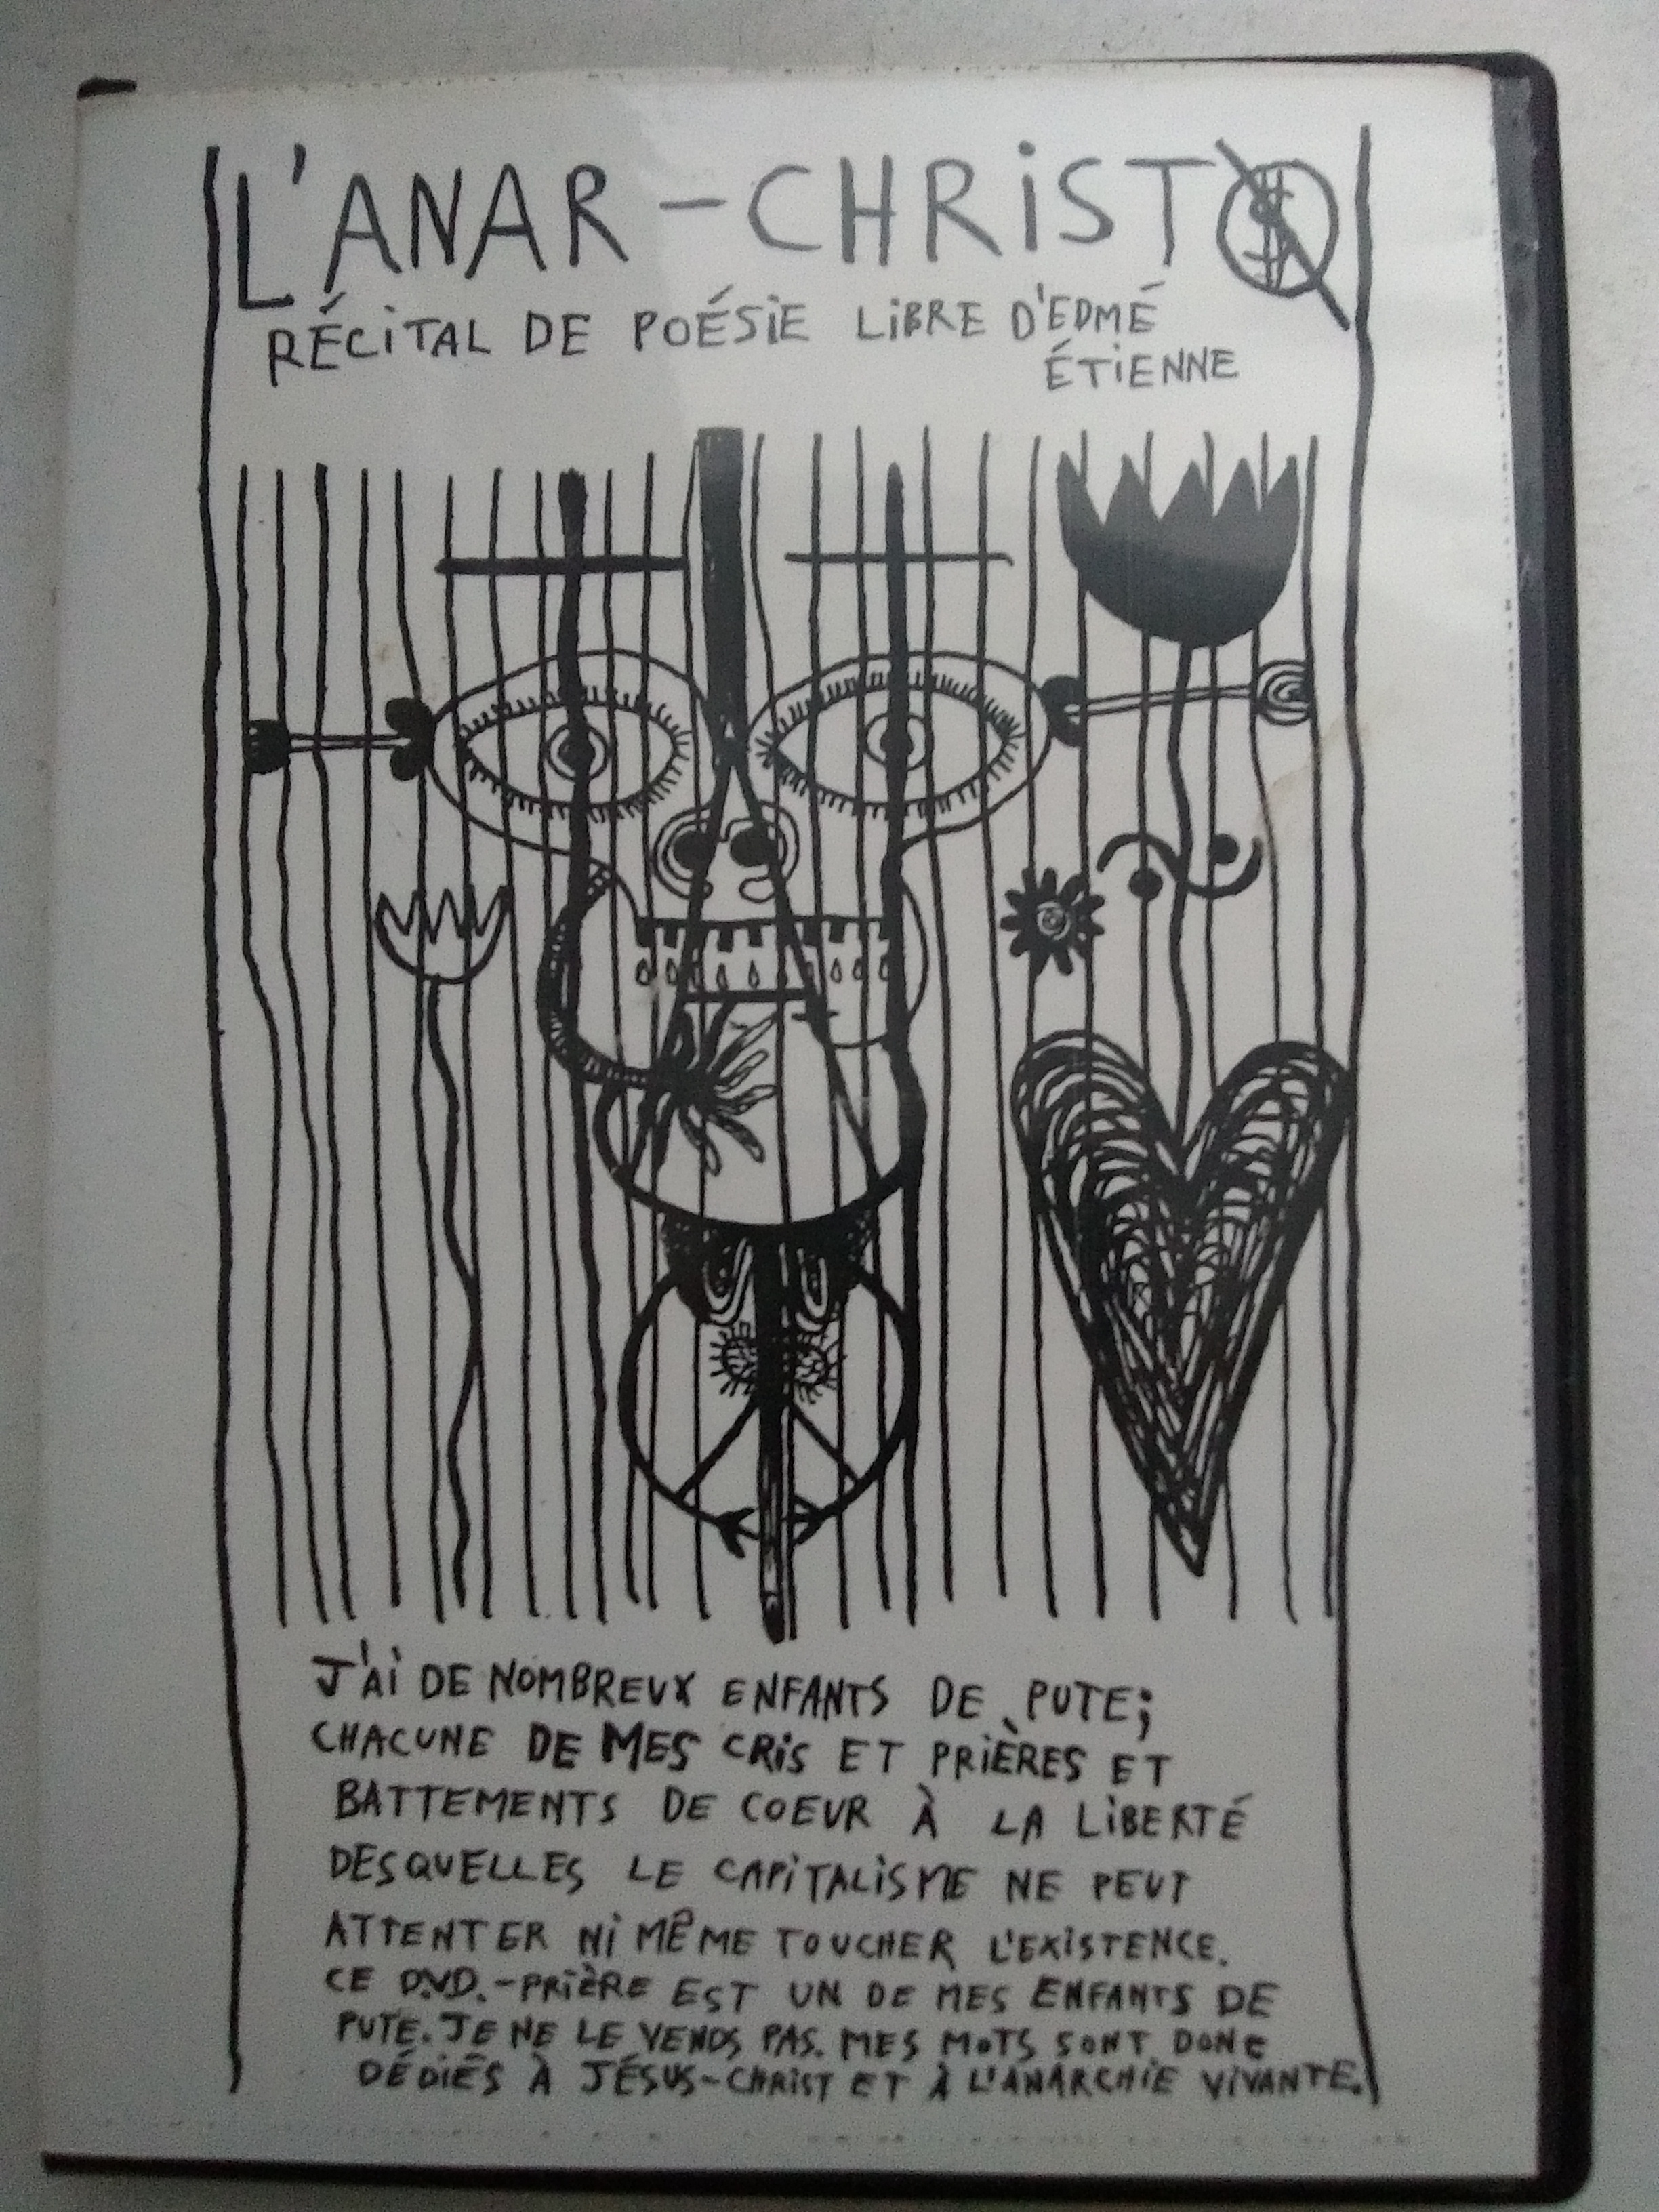 L'ANAR-CHRIST $
RÉCITAL DE POÉSIE LIBRE D'EDMÉ
ÉTIENNE
J'AI DE NOMBREUX ENFANTS DE PUTE;
CHACUNE DE MES CRIS ET PRIÈRES ET
BATTEMENTS DE COEUR À LA LIBERTÉ
DESQUELLES LE CAPITALISME NE PEUT
ATTENTER NI MÊME TOUCHER L'EXISTENCE.
CE D.V.D.-PRIÈRE EST UN DE MES ENFANTS DE
PUTE. JE NE LE VENDS PAS. MES MOTS SONT DONC
DÉDIÉS À JÉSUS-CHRIST ET À L'ANARCHIE VIVANTE.